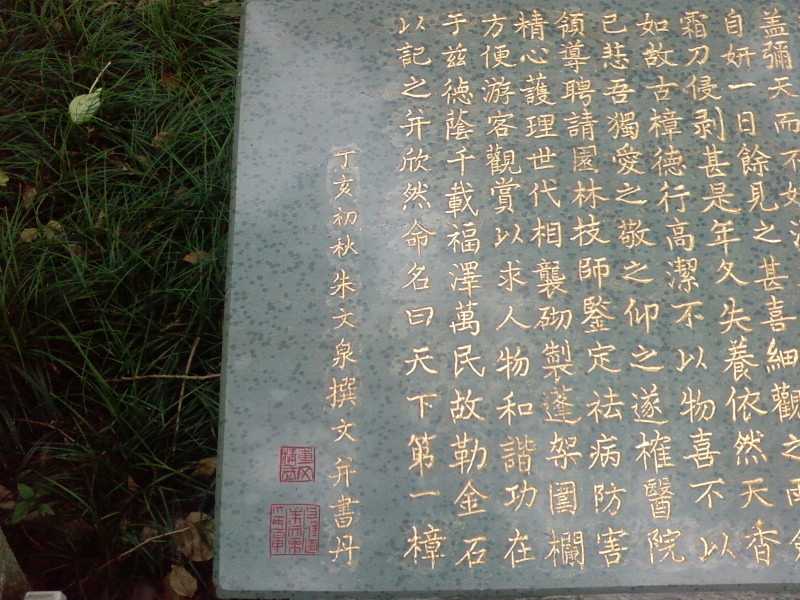 盖彌天而不如
自妍一日餘見之甚喜細觀之而
霜刀侵剥甚是年久失養依然天香
如故古樟德行高潔不以物喜不以
已悲吾獨愛之敬之仰之遂榷醫院
領導聘請園林技師鑒定祛病防害
精心護理世代相襲砌製蓬架圍欄
方便游客觀賞以求人物和諧功在
于兹德蔭千載福澤萬民故勒金石
以記之并欣然命名曰天下第一樟
丁亥初秋朱文泉撰文并書丹